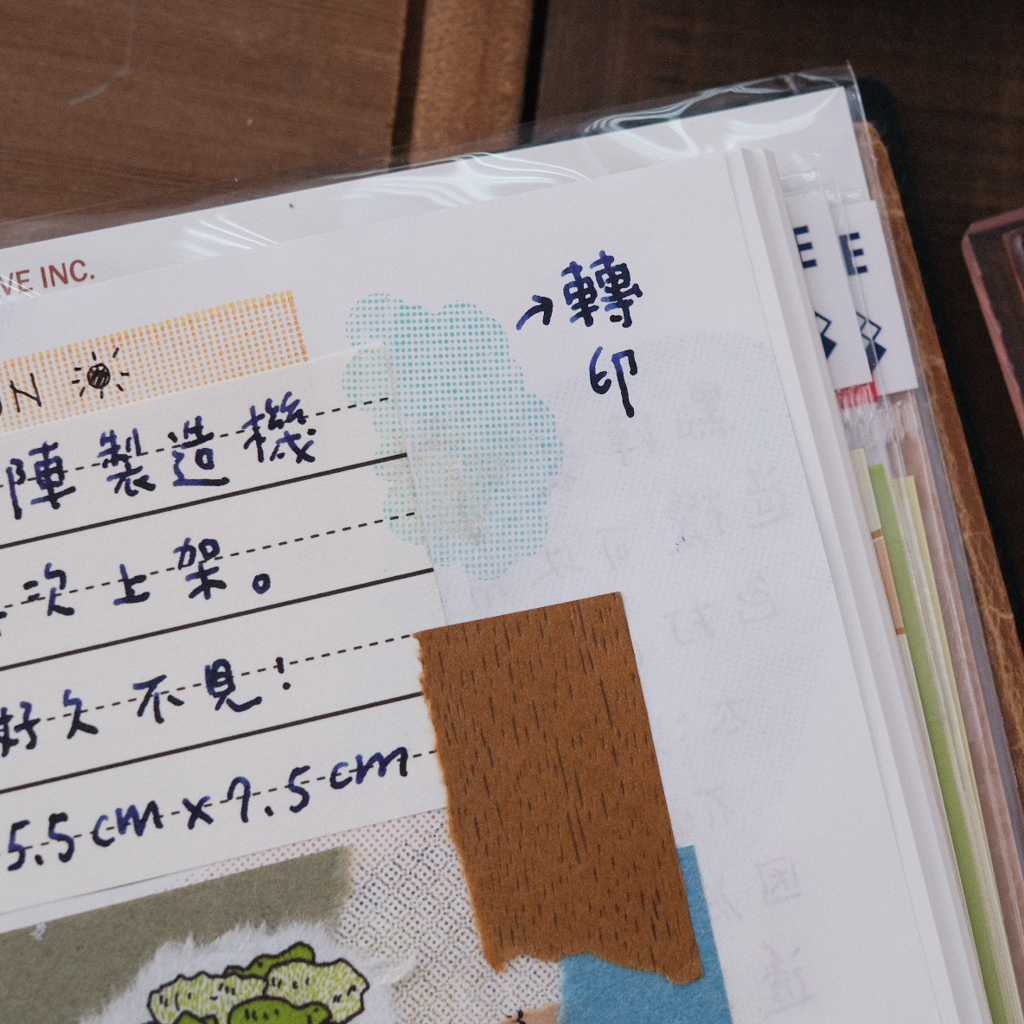 VE INC.
→轉
印
ON
陣製造機
次上架。
好久不見!
5.5cm x 7.5cm
E
E